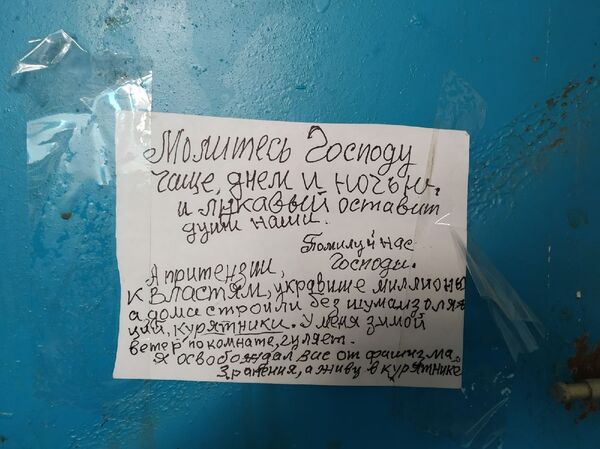 Молитесь Господу
чаще, днем и ночью,
и лукавый оставит
души наши.
Помилуй нас
Господи.
А притензии,
к властям, укравшие миллионы
а дома строили без шумаизоляц
ций, курятники. У меня зимой
ветер по комнате, гуляет.
Я освобождал вас от фашизма.
3 ранения, а живу в курятнике